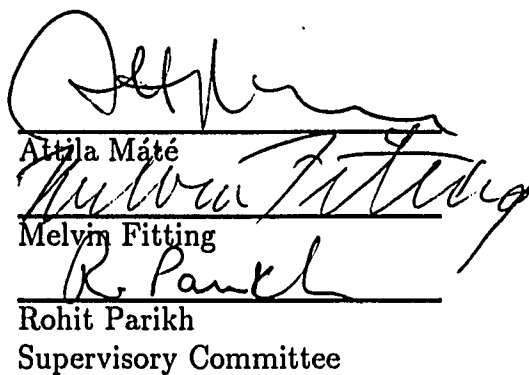 Attila Máté
Melvin Fitting
Melvin Fitting
R. Parikh
Rohit Parikh
Supervisory Committee